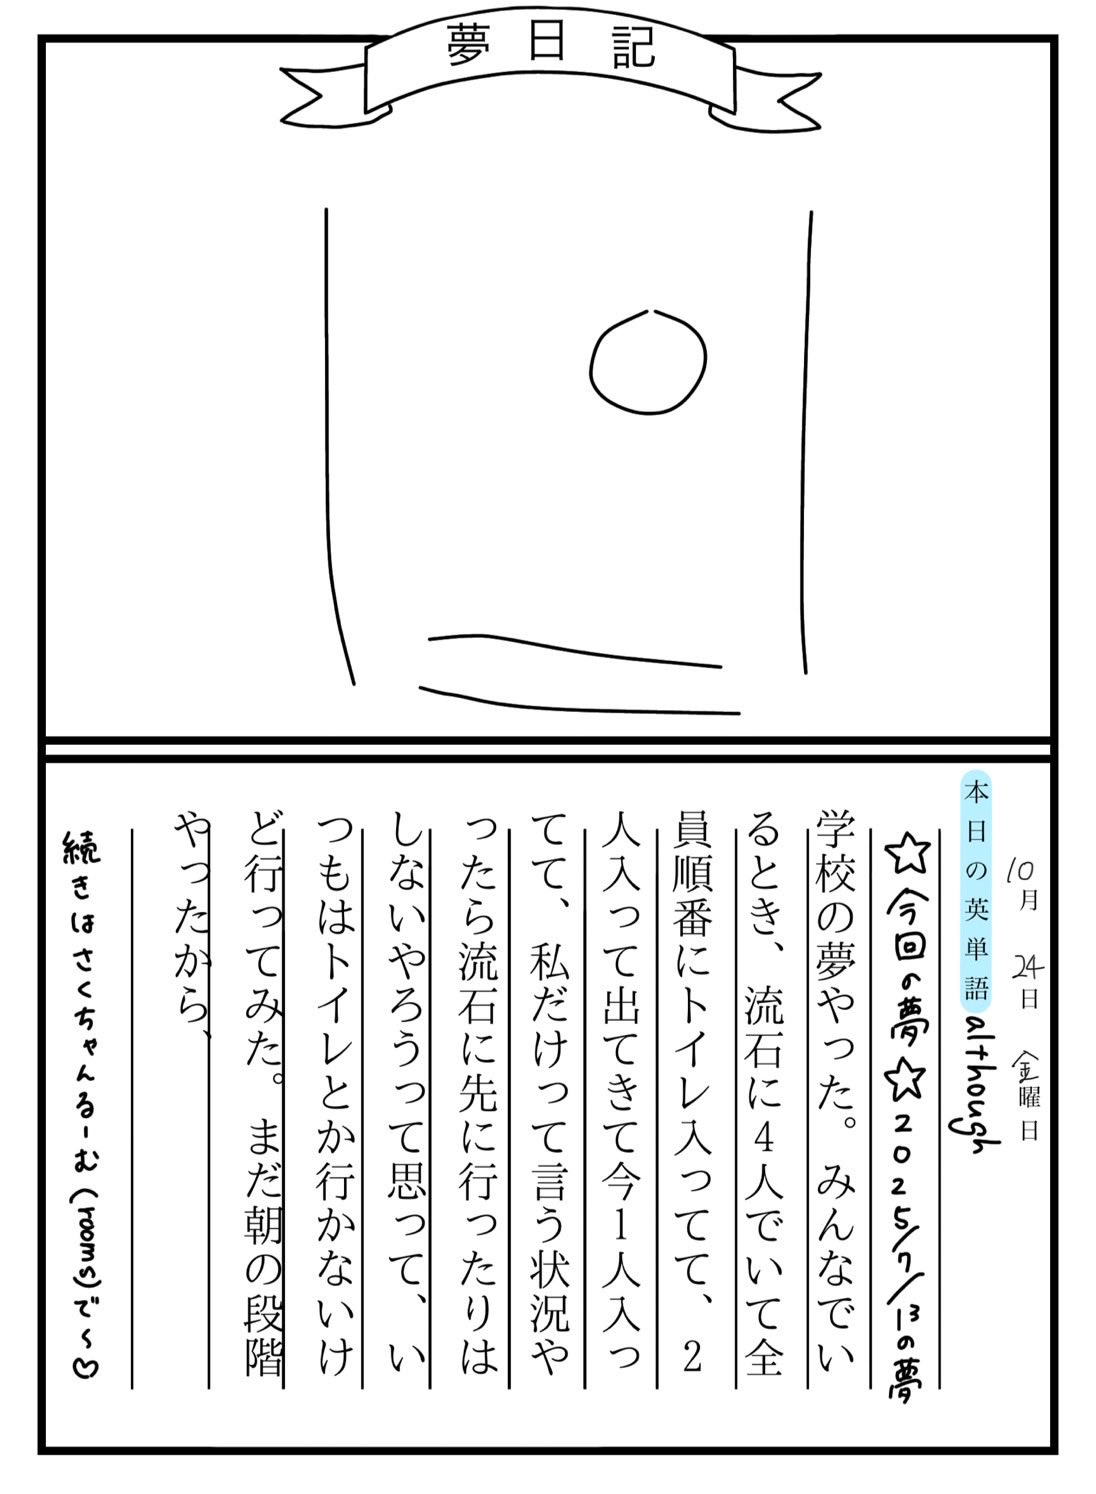 夢日記
10月 24日 金曜日
本日の英単語 although
☆今回の夢☆2025/7/13の夢
学校の夢やった。みんなでい
るとき、流石に4人でいて全
員順番にトイレ入ってて、2
人入って出てきて今1人入っ
てて、私だけって言う状況や
ったら流石に先に行ったりは
しないやろうって思って、い
つもはトイレとか行かないけ
ど行ってみた。まだ朝の段階
やったから、
続きはさくちゃんるーむ(rooms)で〜♡